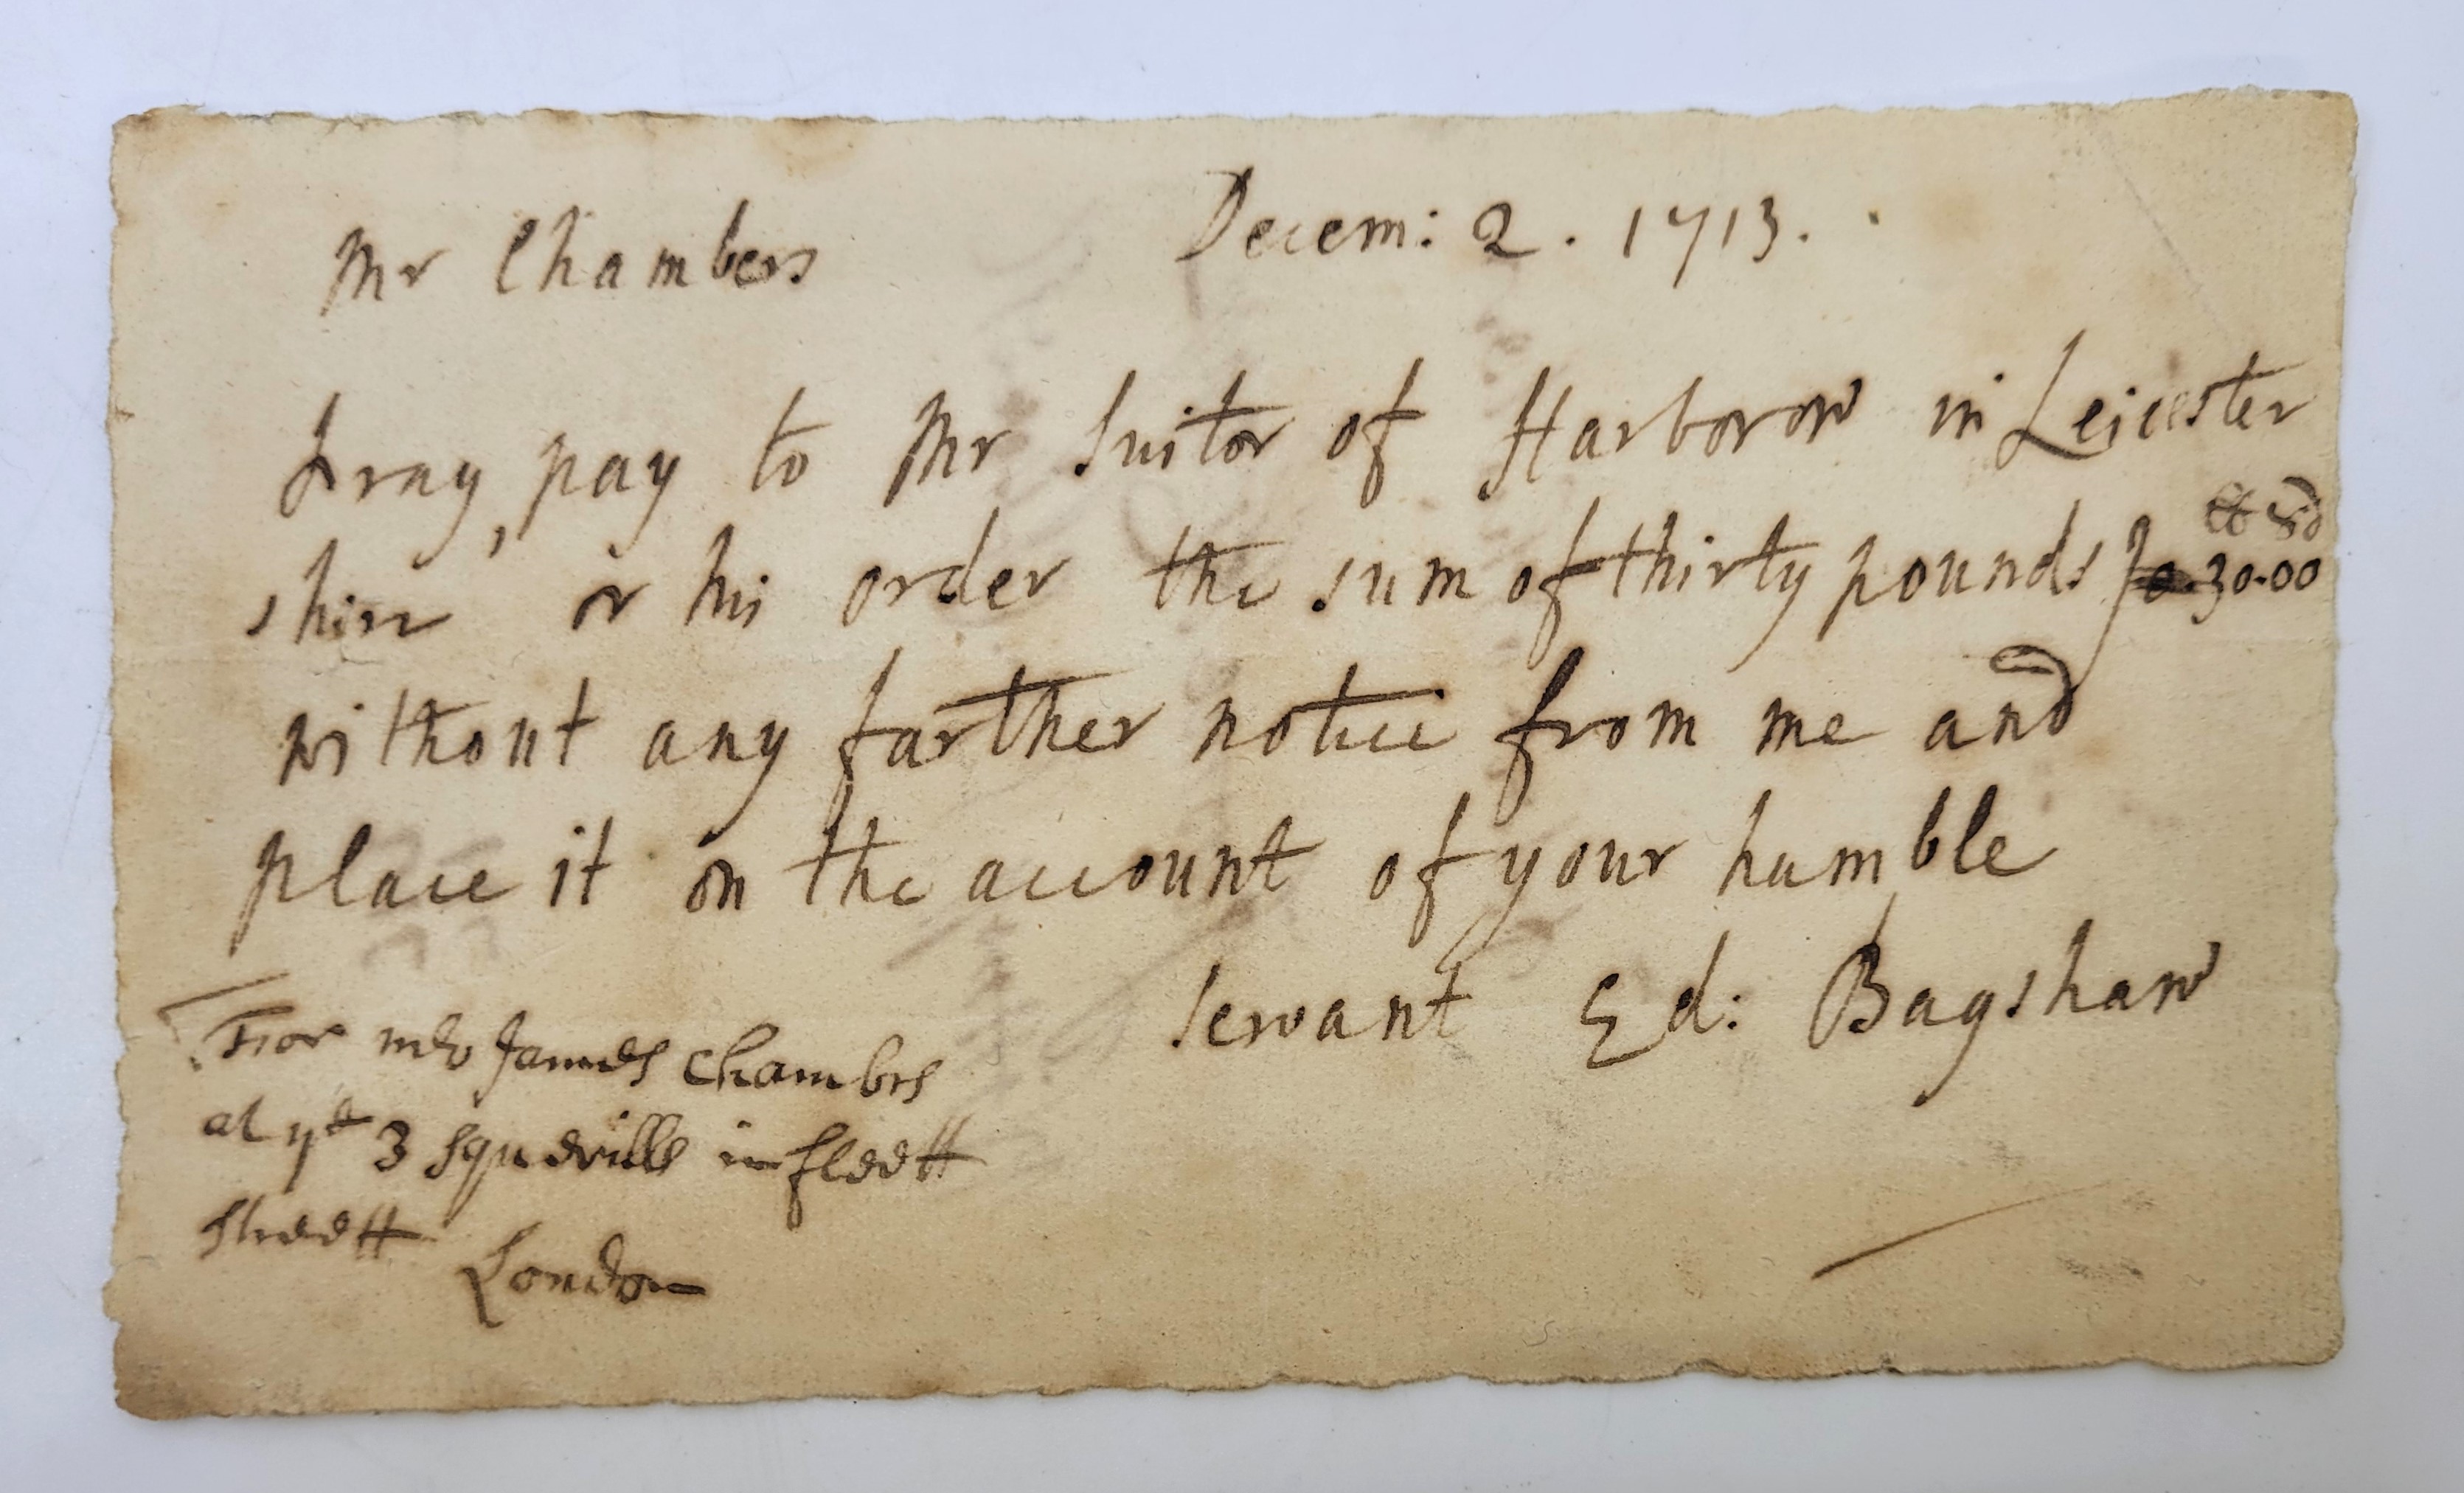 Mr Chambers Decem: 2. 1713.
Pray, pay to Mr Suitor of Harborow in Leicester
shire or his order the sum of thirty pounds 30-00
without any farther notice from me and
place it on the account of your humble
servant Ed: Bagshaw
For mr James Chambrs
at ye 3 squerills in fleett
streett London